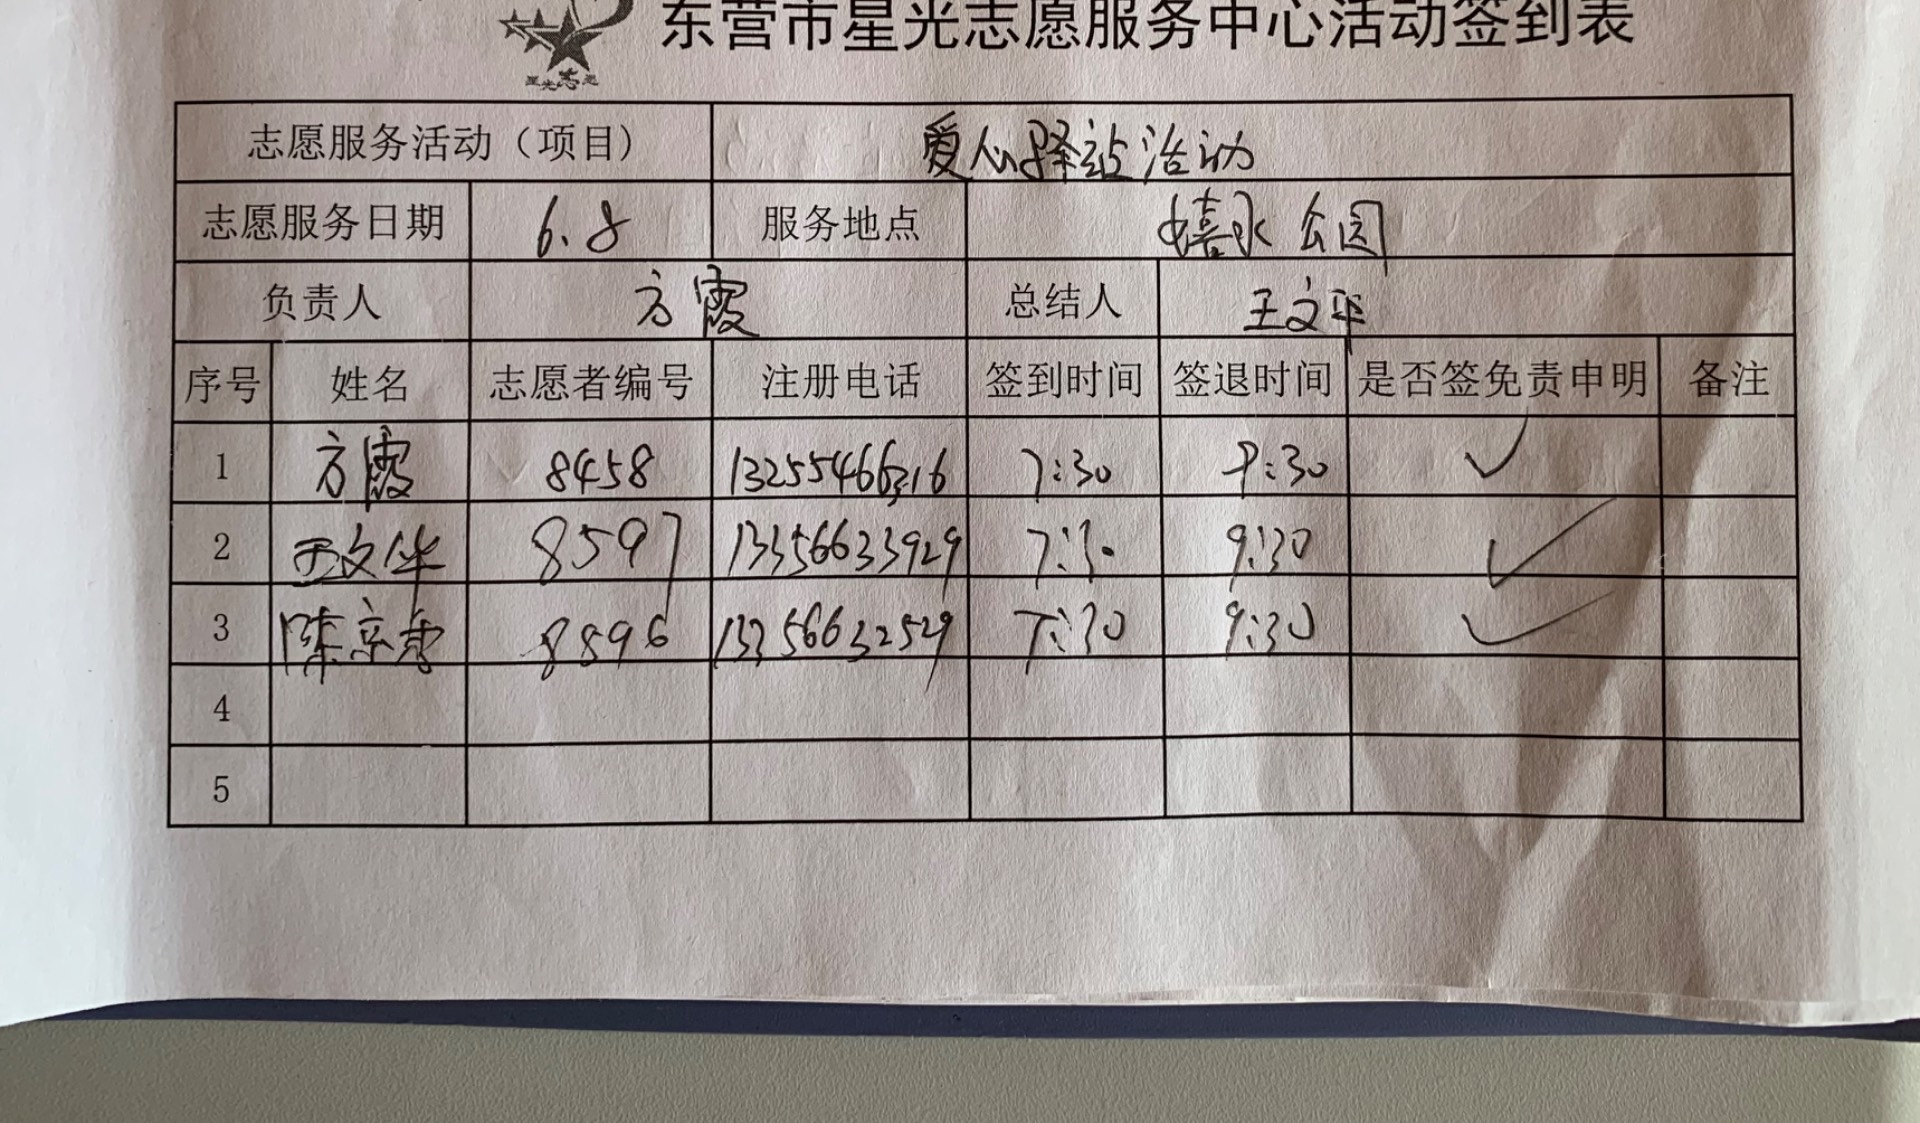 东营市星光志愿服务中心活动签到表
星光志愿
志愿服务活动（项目） 爱心驿站活动
志愿服务日期 6.8 服务地点 嬉水公园
负责人 方霞 总结人 王文华
序号 姓名 志愿者编号 注册电话 签到时间 签退时间 是否签免责申明 备注
1 方霞 8458 13255466316 7:30 9:30 ✓
2 王文华 8597 13356633929 7:30 9:30 ✓
3 陈京秀 8596 13356632529 7:30 9:30 ✓
4
5